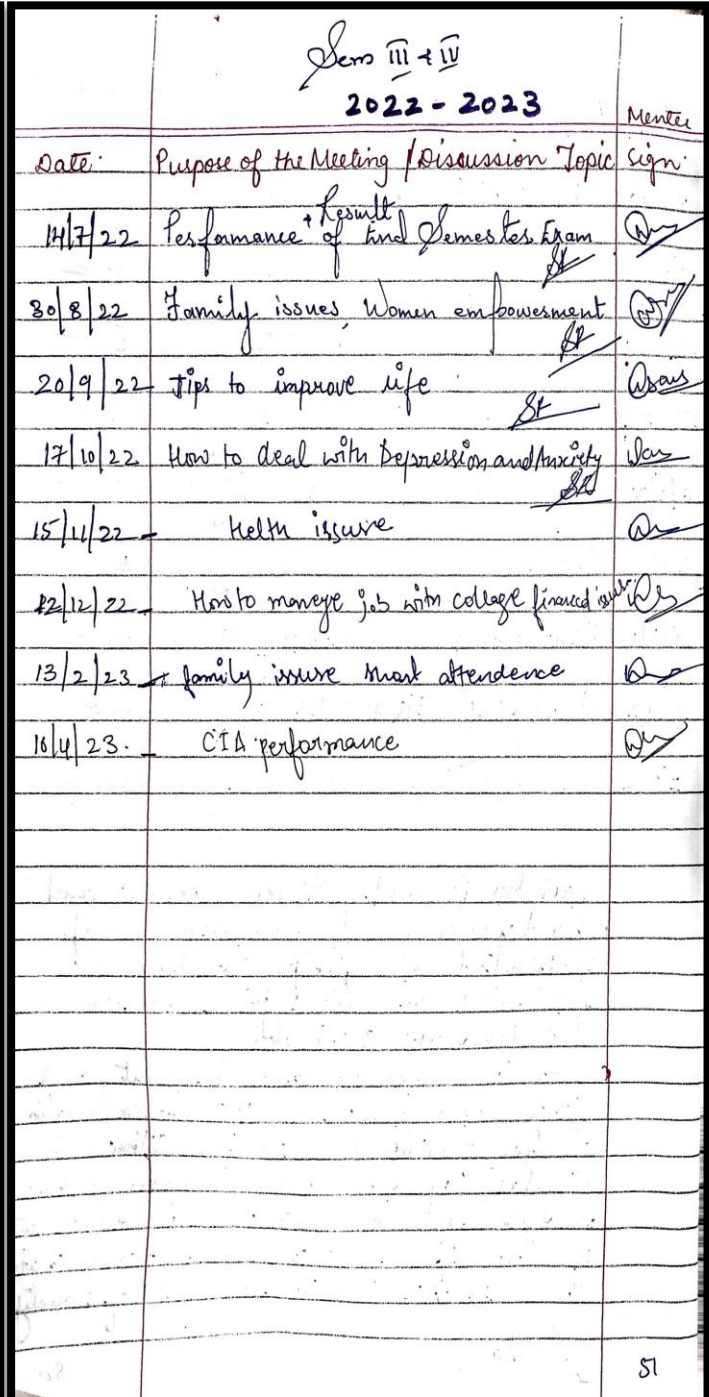 Sem III & IV
2022 - 2023
Mentee
Date: Purpose of the Meeting / Discussion Topic Sign.
14/7/22 Performance + Result of End Semester Exam
30/8/22 Family issues, Women empowerment
20/9/22 Tips to improve life
17/10/22 How to deal with Depression and Anxiety
15/11/22 - Helth issure
12/12/22 - How to maneye job with college financial issues
13/2/23 - family issure short attendence
10/4/23. - CIA performance
51